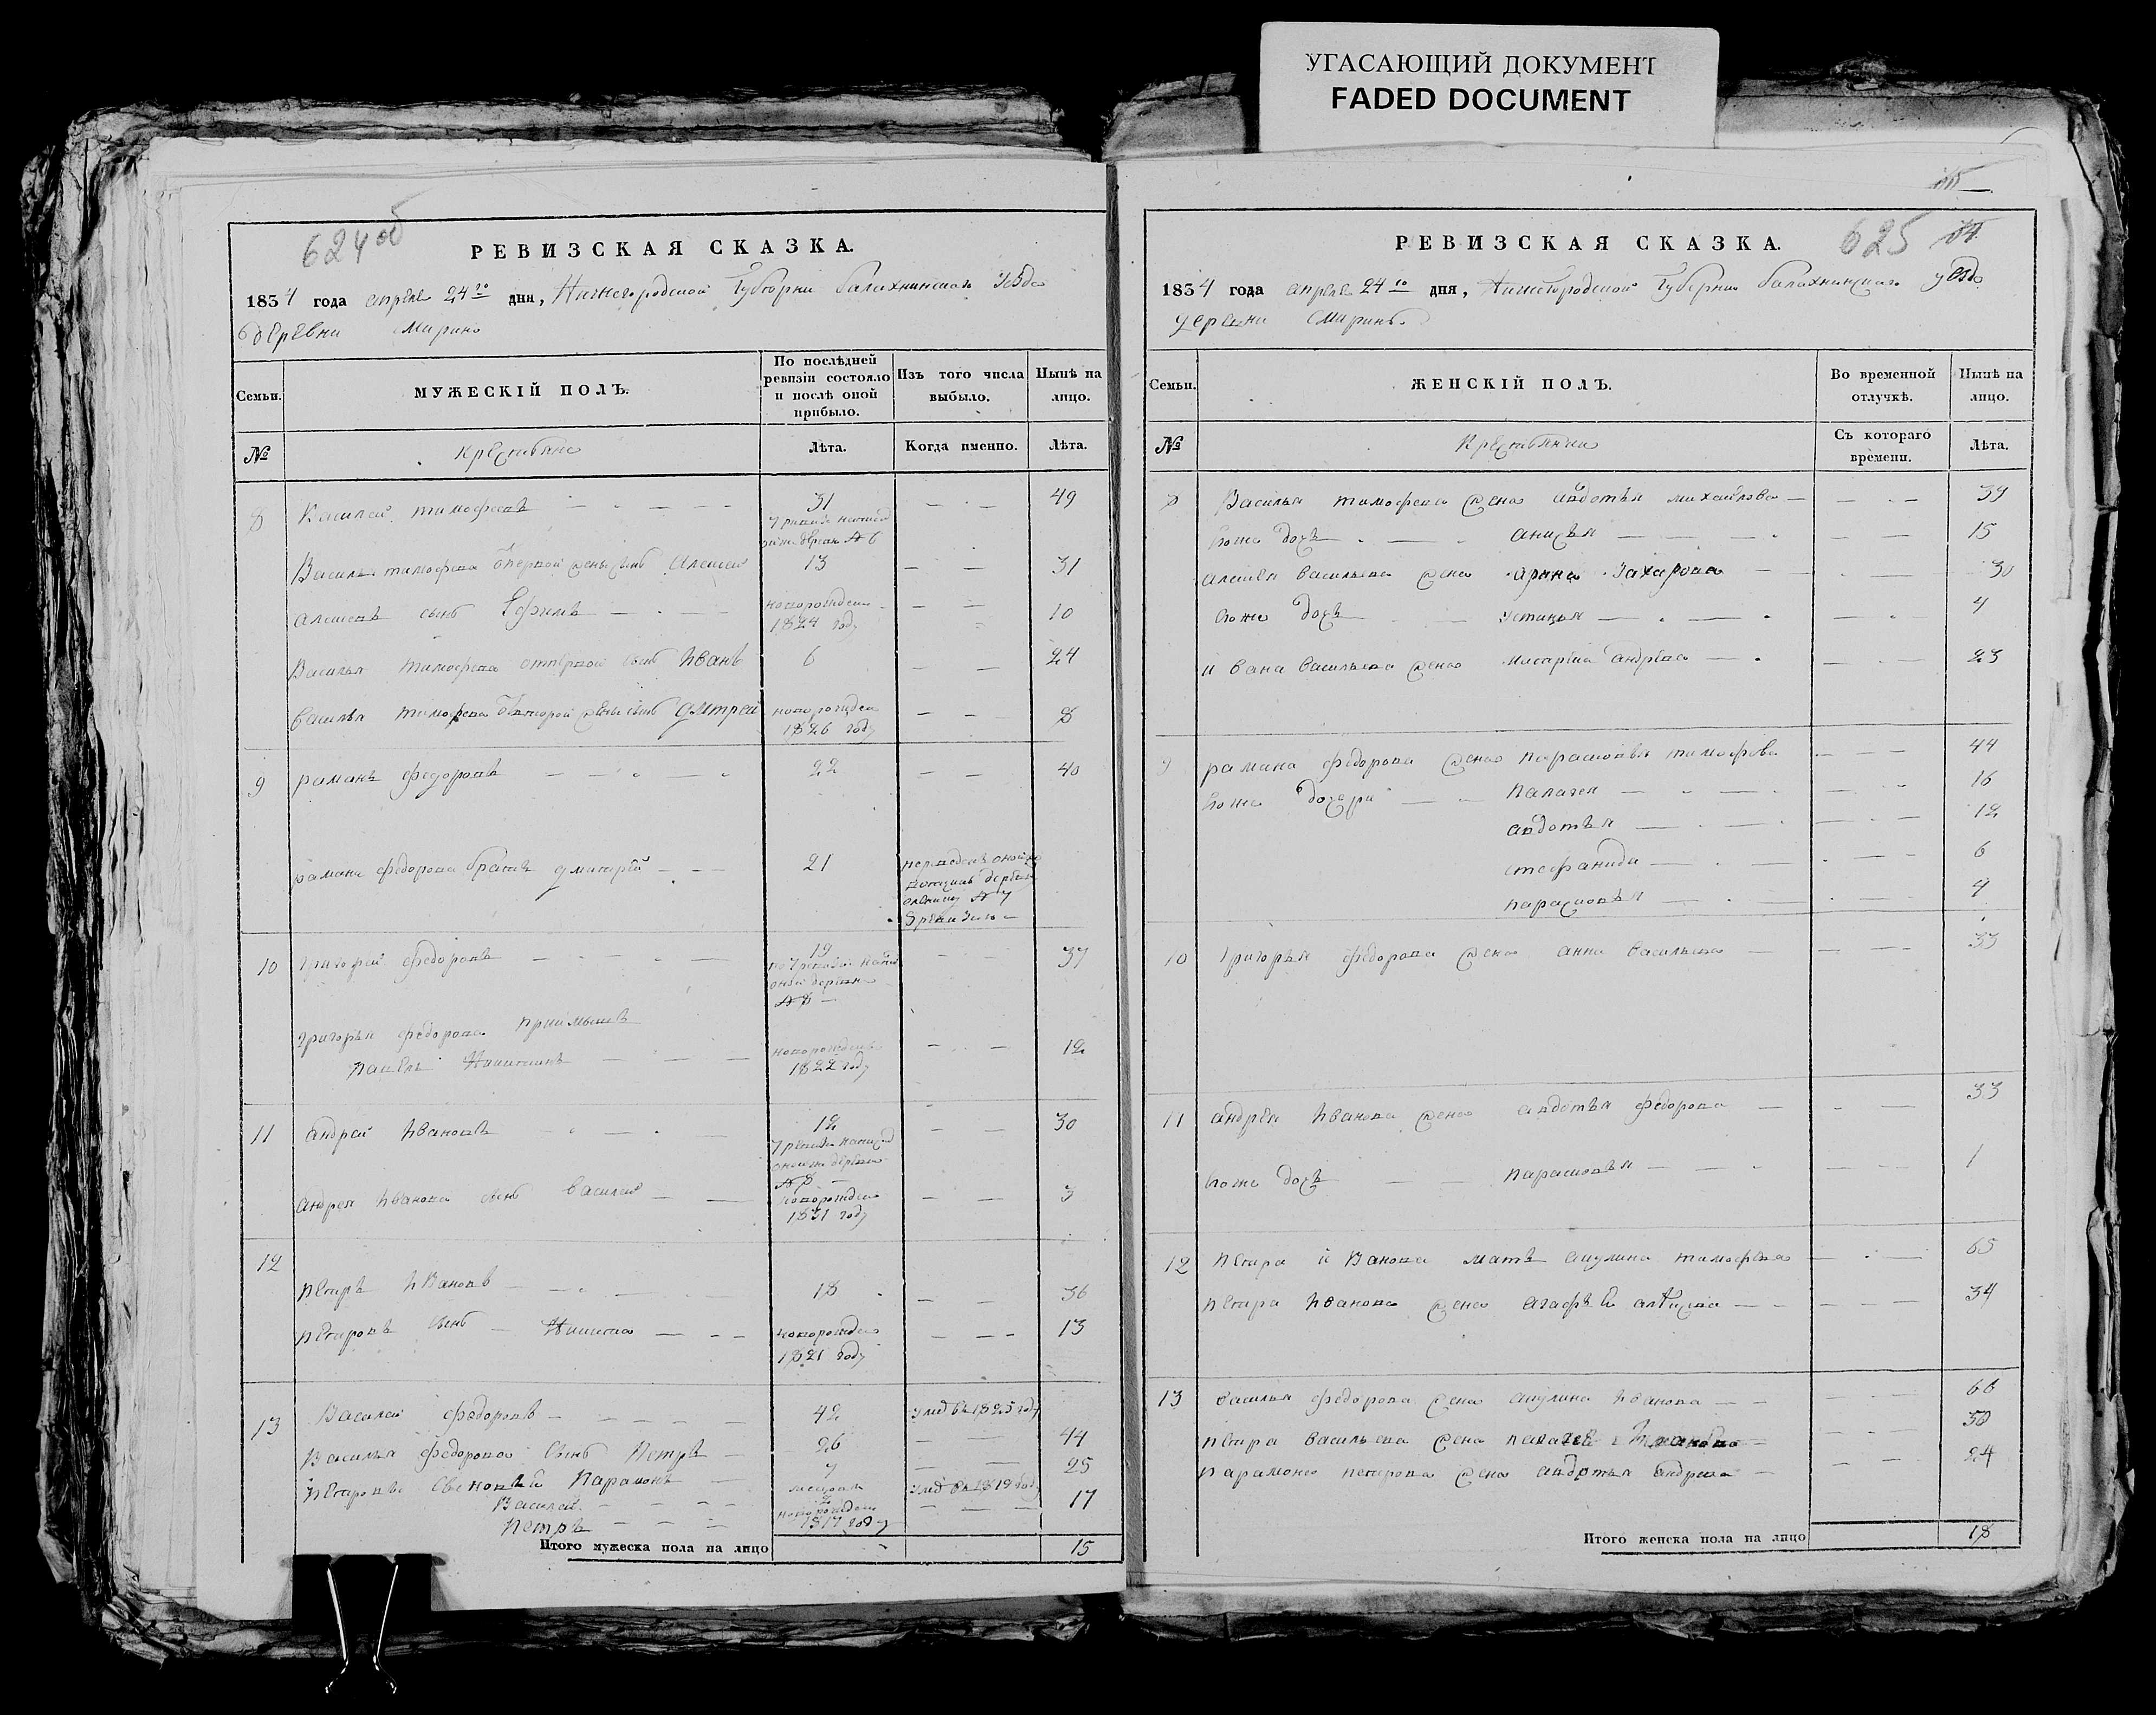 УГАСАЮЩИЙ ДОКУМЕНТ
FADED DOCUMENT
624 об
РЕВИЗСКАЯ СКАЗКА.
1834 года апреля 24го дня, Нижегородской Губернии балахнинского уезда
деревни Марино
Семьи.
МУЖЕСКІЙ ПОЛЪ.
По послѣдней ревизіи состояло и послѣ оной прибыло.
Изъ того числа выбыло.
Нынѣ на лицо.
№
Крестьяне
Лѣта.
Когда именно.
Лѣта.
8 Василей тимофеевъ 31 49
Василья тимофеева отпервой жены сынъ Алексей 13 31
алексеевъ сынъ Ефимъ новорожден 1824 году 10
Василья тимофеева отпервой сынъ Иванъ 6 24
василья тимофеева отвторой жены сынъ Дмитрей новорожден 1826 году 8
9 раманъ федоровъ 22 40
рамана федорова братъ дмитрей 21
10 григорей федоровъ 19 37
григорья федорова приимышъ
павелъ Никитинъ новорожден 1822 году 12
11 андрей Ивановъ 12 30
андрея Иванова сынъ василей новорожден 1831 году 3
12
петръ Ивановъ 18 36
петровъ сынъ Никита новорожден 1821 году 13
13 Василей федоровъ 42 умер въ 1825 году
Василья федорова сынъ Петръ 26 44
петровы сыновьи Парамонъ 7 25
Василей умер въ 1819 году
Петръ новорожден 1817 году 17
Итого мужеска пола на лицо 15
625
РЕВИЗСКАЯ СКАЗКА.
1834 года апреля 24го дня, Нижегородской Губернии балахнинского уезда
деревни Марино
Семьи.
ЖЕНСКІЙ ПОЛЪ.
Во временной отлучкѣ.
Нынѣ на лицо.
№
Крестьянки
Съ котораго времени.
Лѣта.
8 Василья тимофеева жена авдотья михайлова 39
Ево же дочь анисья 15
алексея васильева жена арина Захарова 30
Ево же дочь устинья 4
Ивана васильева жена андреева 23
9 рамана федорова жена парасковья тимофеева 44
Ево же дочери палагея 16
авдотья 12
стефанида 6
парасковья 4
10 григорья федорова жена анна васильева 33
11 андрея Иванова жена авдотья федорова 33
Ево же дочь парасковья 1
12 петра Иванова мать акулина тимофеева 65
петра Иванова жена агафья 34
13 василья федорова жена акулина Иванова 66
петра васильева жена палагея 50
парамона петрова жена авдотья андреева 24
Итого женска пола на лицо 18